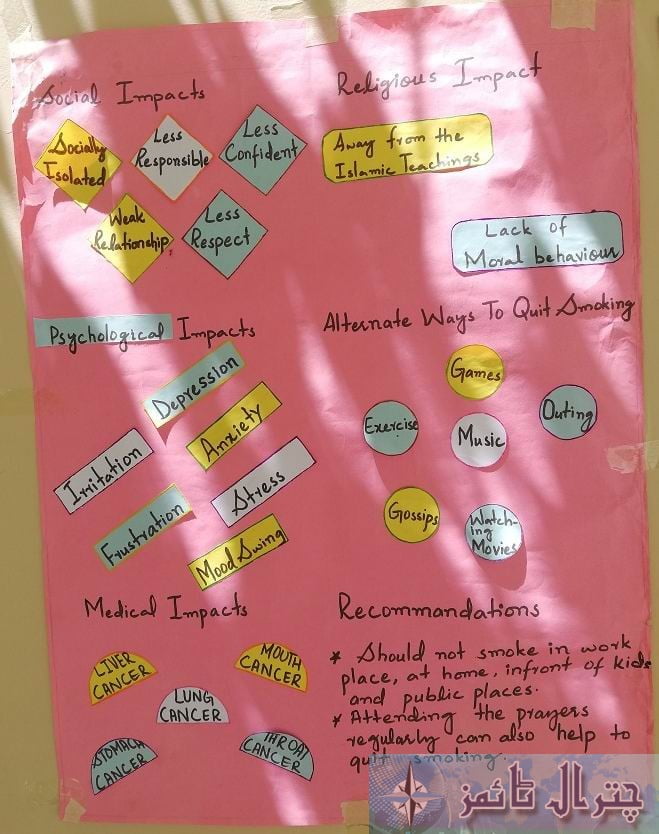 Social Impacts
Socially
Isolated
Less
Responsible
Less
Confident
Weak
Relationship
Less
Respect
Religious Impact
Away from the
Islamic Teachings
Lack of
Moral behaviour
Psychological Impacts
Depression
Anxiety
Irritation
Stress
Frustration
Mood Swing
Alternate Ways To Quit Smoking
Games
Exercise
Music
Outing
Gossips
Watch-
ing
Movies
Medical Impacts
LIVER
CANCER
MOUTH
CANCER
LUNG
CANCER
STOMACH
CANCER
THROAT
CANCER
Recommandations
* Should not smoke in work
place, at home, infront of kids
and public places.
* Attending the prayers
regularly can also help to
quit smoking.
چترال ٹائمز